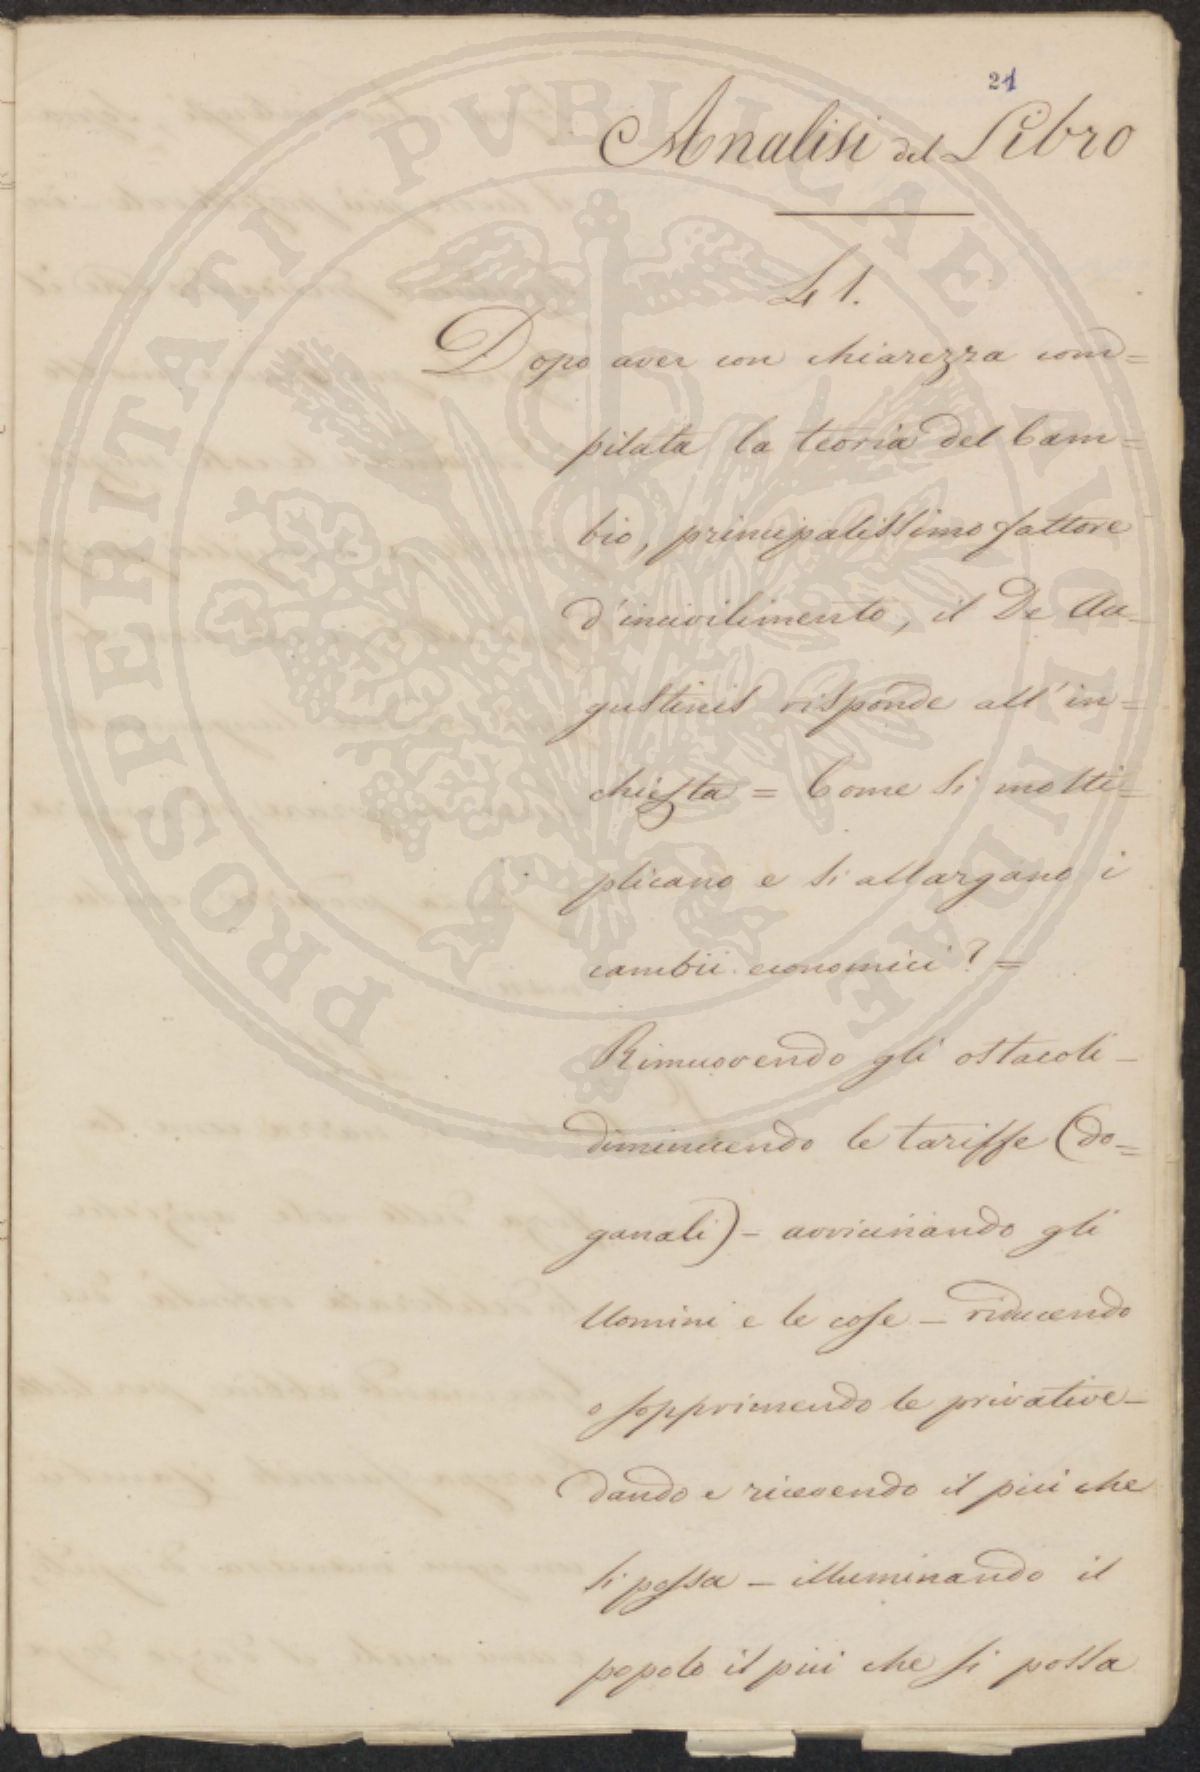 21
Analisi del Libro
§ 1.
Dopo aver con chiarezza com=
pilata la teoria del Cam=
bio, principalissimo fattore
d'incivilimento, il De Au-
gustinis risponde all'in=
chiesta = Come si molti=
plicano e si allargano i
cambii economici? =
Rimuovendo gli ostacoli -
diminuendo le tariffe (do=
ganali) - avvicinando gli
Uomini e le cose - riducendo
o sopprimendo le privative -
dando e ricevendo il più che
si possa - illuminando il
popolo il più che si possa
PROSPERITATI PVBLICAE AVGENDAE